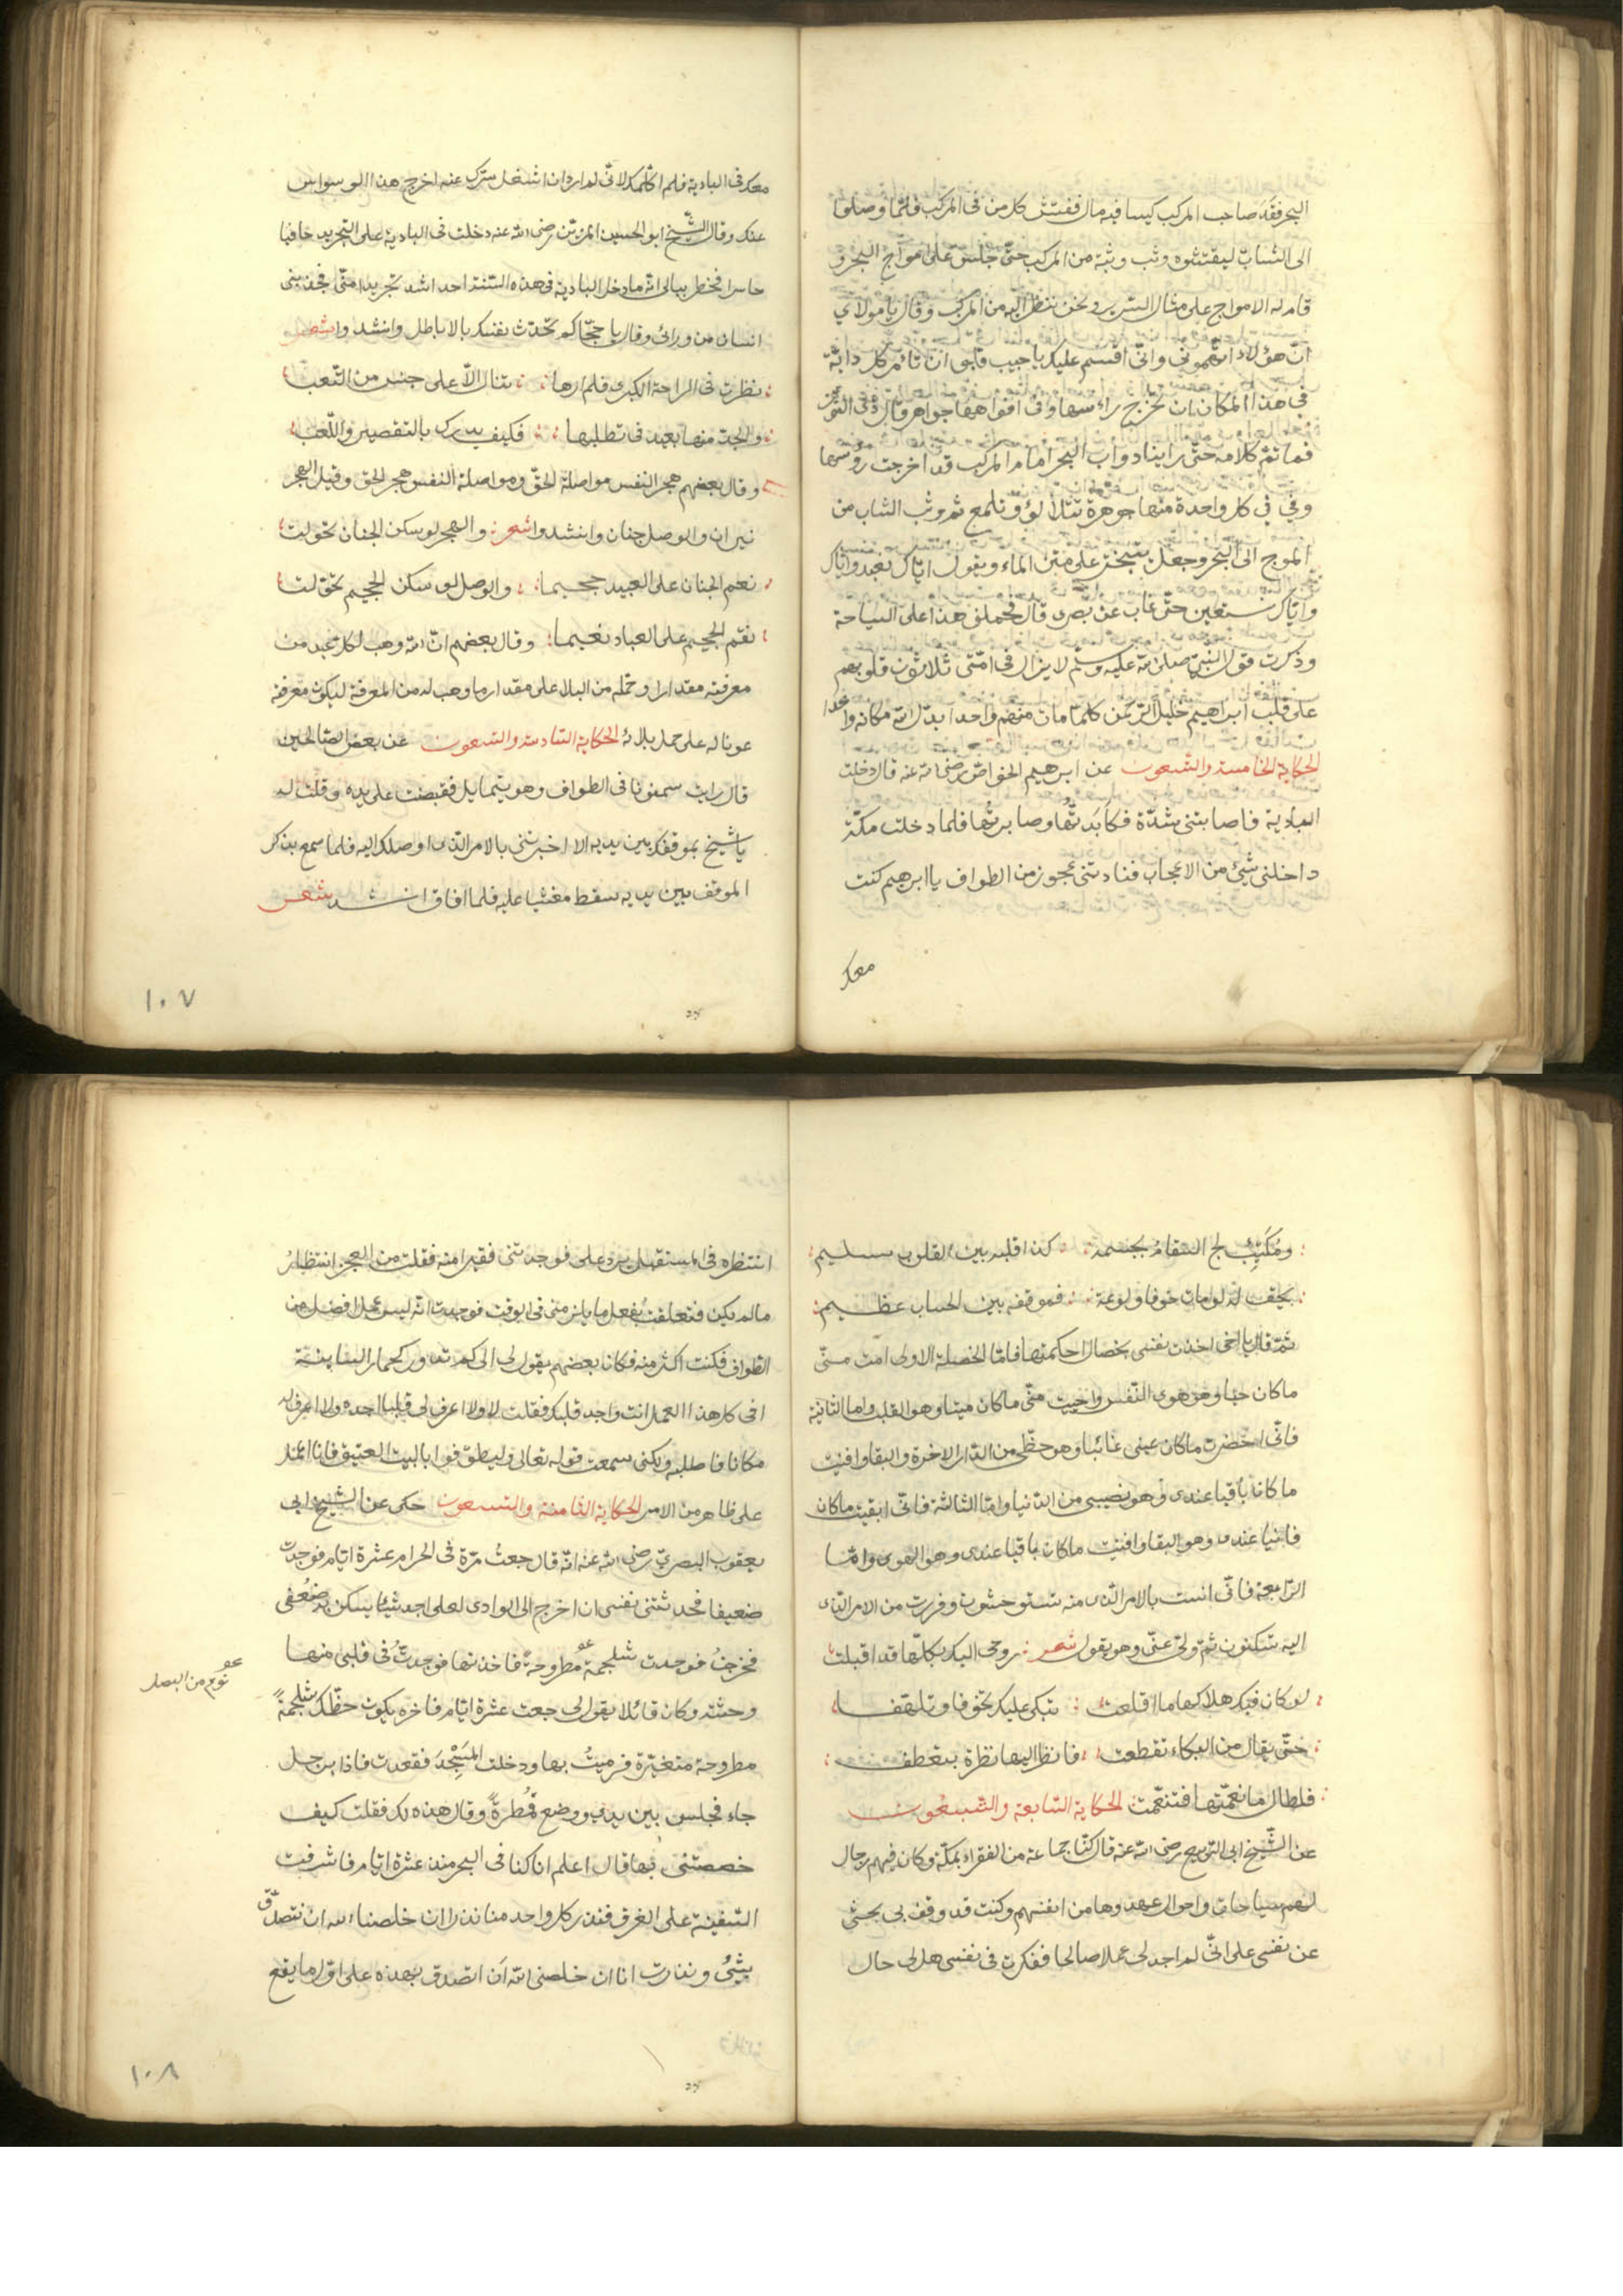 البحر فقد صاحب المركب كيسا فيه مال ففتش كل من فى المركب فلما وصلوا
الى الشاب ليفتشوه وثب وثبة من المركب حتى جلس على امواج البحر و
قام له الامواج على مثال السرير ونحن ننظر اليه من المركب وقال يا مولاي
ان هؤلاء اتهموني وانى اقسم عليك يا حبيب قلبى ان تأمر كل دابة
فى هذا المكان ان تخرج راءسها وفى افواهها جواهر قال ذى النون
فما تم كلامه حتى راينا دواب البحر امام المركب قد اخرجت رؤسها
وفى فى كل واحدة منها جوهرة تتلالؤ وتلمع ثم وثب الشاب من
الموج الى البحر وجعل يتبختر على متن الماء ويقول اياك نعبد واياك
واياك نستعين حتى غاب عن بصرى قال فحملنى هذا على السياحة
وذكرت قول النبى صلى الله عليه وسلم لا يزال فى امتى ثلاثون قلوبهم
على قلب ابراهيم خليل الرحمن كلما مات منهم واحدا بدل الله مكانه واحدا
الحكاية الخامسة والتسعون عن ابرهيم الخواص رضى الله عنه قال دخلت
البادية فاصابتنى شدة فكابدتها وصابرتها فلما دخلت مكة
داخلنى شئ من الاعجاب فنادتنى عجوز من الطواف يا ابرهيم كنت
معك
معك فى البادية فلم اكلمك لانى لم ارد ان اشغل سرك عنه اخرج هذا الوسواس
عنك وقال الشيخ ابو الحسين المزين رضى الله عنه دخلت فى البادية على التجريد حافيا
حاسرا فخطر ببالى انه ما دخل البادية فى هذه السنة احد اشد تجريدا منى فجذبنى
انسان من ورائى وقال يا حجام كم تحدث نفسك بالاباطل وانشد واشعر
نظرت فى الراحة الكبرى فلم ارها تنال الا على جسر من التعب
والجد منها بعيد فى تطلبها فكيف يدرك بالتقصير واللعب
وقال بعضهم هجر النفس مواصلة الحق ومواصلة النفس هجر الحق وقيل الهجر
نيران والوصل جنان وانشدوا شعر والهجر لو سكن الجنان تحولت
نعم الجنان على العبيد جحيما والوصل لو سكن الجحيم تحولت
نقم الجحيم على العباد نعيما وقال بعضهم ان الله وهب لكل عبد من
معرفته مقدارا وحمله من البلاء على مقدار ما وهب له من المعرفة ليكون معرفة
عونا له على حمل بلائه الحكاية السادسة والتسعون عن بعض الصالحين
قال رايت سمنونا فى الطواف وهو يتمايل فقبضت على يده وقلت له
يا شيخ بموقفك بين يديه الا اخبرتنى بالامر الذى اوصلك اليه فلما سمع بذكر
الموقف بين يديه سقط مغشيا عليه فلما افاق انشد شعر
١٠٧
ومكتئب لج السقام بجسمه كذا قلبه بين القلوب سقيم
يحق له لو مات خوفا ولوعة فموقفه بين الحساب عظيم
ثم قال يا اخى اخذت نفسى بخصال احكمتها فاما الخصلة الاولى امت منى
ماكان حيا وهو هوى النفس واحييت منى ماكان ميتا وهو القلب واما الثانية
فانى احضرت ماكان عنى غائبا وهو حظى من الدار الاخرة والبقا وافنيت
ما كان باقيا عندى وهو نصيبى من الدنيا واما الثالثة فانى ابقيت ماكان
فانيا عندى وهو البقا وافنيت ماكان باقيا عندى وهو الهوى واما
الرابعة فانى انست بالامر الذى منه تستوحشون وفررت من الامر الذى
اليه تسكنون ثم ولى عنى وهو يقول شعر روحى اليك بكلها قد اقبلت
لو كان فيك هلاكها ما اقلعت تبكى عليك تخوفا وتلهفا
حتى يقال من البكاء تقطعت فانظر اليها نظرة بتعطف
فلطال ما نعمتها فتنعمت الحكاية السابعة والتسعون
عن الشيخ ابى الربيع رضى الله عنه قال كنا جماعة من الفقراء بمكة وكان فيهم رجال
لهم سياحات واحوال عهدوها من انفسهم وكنت قد وقف بى بحثى
عن نفسى على انى لم اجد لى عملا صالحا ففكرت فى نفسى هل لى حال
انتظره فى المستقبل يرد على فوجدتنى فقيرا منه فقلت من العجز انتظار
مالم يكن فتعلقت بفعل ما يلزمنى فى الوقت فوجدت انه ليس عمل افضل من
الطواف فكنت اكثر منه فكان بعضهم يقول لى الى كم تدور كحمار الساقية
افى كل هذا العمل انت واجد قلبك فقلت لا ولا اعرف لى قلبا اجده ولا اعرف له
مكانا فاطلبه ولكنى سمعت قوله تعالى وليطوفوا بالبيت العتيق فانا اعمل
على ظاهر من الامر الحكاية الثامنة والتسعون حكى عن الشيخ ابى
يعقوب البصرى رضى الله عنه انه قال جعت مرة فى الحرام عشرة ايام فوجدت
ضعيفا فحدثتنى نفسى ان اخرج الى الوادى لعلى اجد شيئا يسكن به ضعفى
فخرجت فوجدت شلجمة مطروحة فاخذتها فوجدت فى قلبى منها
نوع من البصل
وحشة وكان قائلا يقول لى جعت عشرة ايام فاخره يكون حظك شلجمة
مطروحة متغيرة فرميت بها ودخلت المسجد فقعدت فاذا برجل
جاء فجلس بين يدى ووضع قمطرة وقال هذه لك فقلت كيف
خصصتنى بها قال اعلم انا كنا فى البحر منذ عشرة ايام فاشرفت
السفينة على الغرق فنذر كل واحد منا نذرا ان خلصنا الله ان نتصدق
بشئ ونذرت انا ان خلصنى الله ان اتصدق بهذه على اول ما يقع
١٠٨